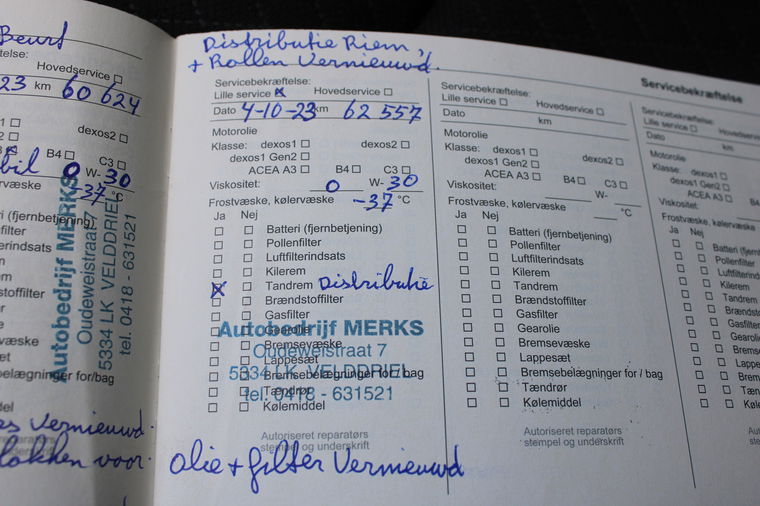 Beurt
telse:
Hovedservice ☐
23 km 60 624
☐
dexos2 ☐
B4 ☐ C3 ☐
bil 0 W- 30
ervæske -37 °C
ri (fjernbetjening)
filter
filterindsats
em
m
stoffilter
lter
olie
sevæske
æt
belægninger for/bag
ør
del
Autobedrijf MERKS
Oudeweistraat 7
5334 LK VELDDRIEL
tel. 0418 - 631521
es Vernieuwd.
lokken voor.
Distributie Riem,
+ Rollen Vernieuwd.
Servicebekræftelse:
Lille service ☒ Hovedservice ☐
Dato 4-10-23 km 62 557
Motorolie
Klasse: dexos1 ☐ dexos2 ☐
dexos1 Gen2 ☐
ACEA A3 ☐ B4 ☐ C3 ☐
Viskositet: 0 W- 30
Frostvæske, kølervæske -37 °C
Ja Nej
☐ ☐ Batteri (fjernbetjening)
☐ ☐ Pollenfilter
☐ ☐ Luftfilterindsats
☐ ☐ Kilerem
☒ ☐ Tandrem Distributie
☐ ☐ Brændstoffilter
☐ ☐ Gasfilter
☐ ☐ Gearolie
☐ ☐ Bremsevæske
☐ ☐ Lappesæt
☐ ☐ Bremsebelægninger for / bag
☐ ☐ Tændrør
☐ ☐ Kølemiddel
Autobedrijf MERKS
Oudeweistraat 7
5334 LK VELDDRIEL
tel. 0418 - 631521
Autoriseret reparatørs
stempel og underskrift
Olie + filter Vernieuwd
Servicebekræftelse:
Lille service ☐ Hovedservice ☐
Dato km
Motorolie
Klasse: dexos1 ☐ dexos2 ☐
dexos1 Gen2 ☐
ACEA A3 ☐ B4 ☐ C3 ☐
Viskositet: W-
Frostvæske, kølervæske °C
Ja Nej
☐ ☐ Batteri (fjernbetjening)
☐ ☐ Pollenfilter
☐ ☐ Luftfilterindsats
☐ ☐ Kilerem
☐ ☐ Tandrem
☐ ☐ Brændstoffilter
☐ ☐ Gasfilter
☐ ☐ Gearolie
☐ ☐ Bremsevæske
☐ ☐ Lappesæt
☐ ☐ Bremsebelægninger for / bag
☐ ☐ Tændrør
☐ ☐ Kølemiddel
Autoriseret reparatørs
stempel og underskrift
Servicebekræftelse
Servicebekræftelse:
Lille service ☐ Hovedservice
Dato km
Motorolie
Klasse: dexos1 ☐
dexos1 Gen2 ☐
ACEA A3 ☐ B4
Viskositet:
Frostvæske, kølervæske
Ja Nej
☐ ☐ Batteri (fjern
☐ ☐ Pollenfilter
☐ ☐ Luftfilterind
☐ ☐ Kilerem
☐ ☐ Tandrem
☐ ☐ Brændsto
☐ ☐ Gasfilter
☐ ☐ Gearolie
☐ ☐ Bremsev
☐ ☐ Lappesæ
☐ ☐ Bremse
☐ ☐ Tændr
☐ ☐ Kølem
Auto
stem